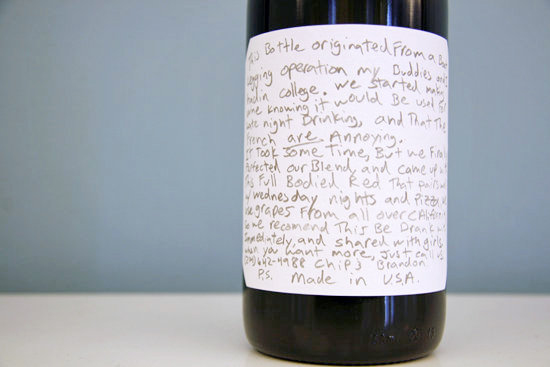 This Bottle originated From a Boot
legging operation my Buddies and I
had in college. we started making
wine knowing it would Be used for
late night Drinking, and That The
French are Annoying.
It Took some Time, But we Finally
Perfected our Blend and came up with
This Full Bodied Red That pairs with
my wednesday nights and Pizza. we
use grapes From all over California
So we recomend This Be Drank
Immediately, and shared with girls.
when you want more, Just call us
642-4988 Chip & Brandon
P.S. Made in U.S.A.